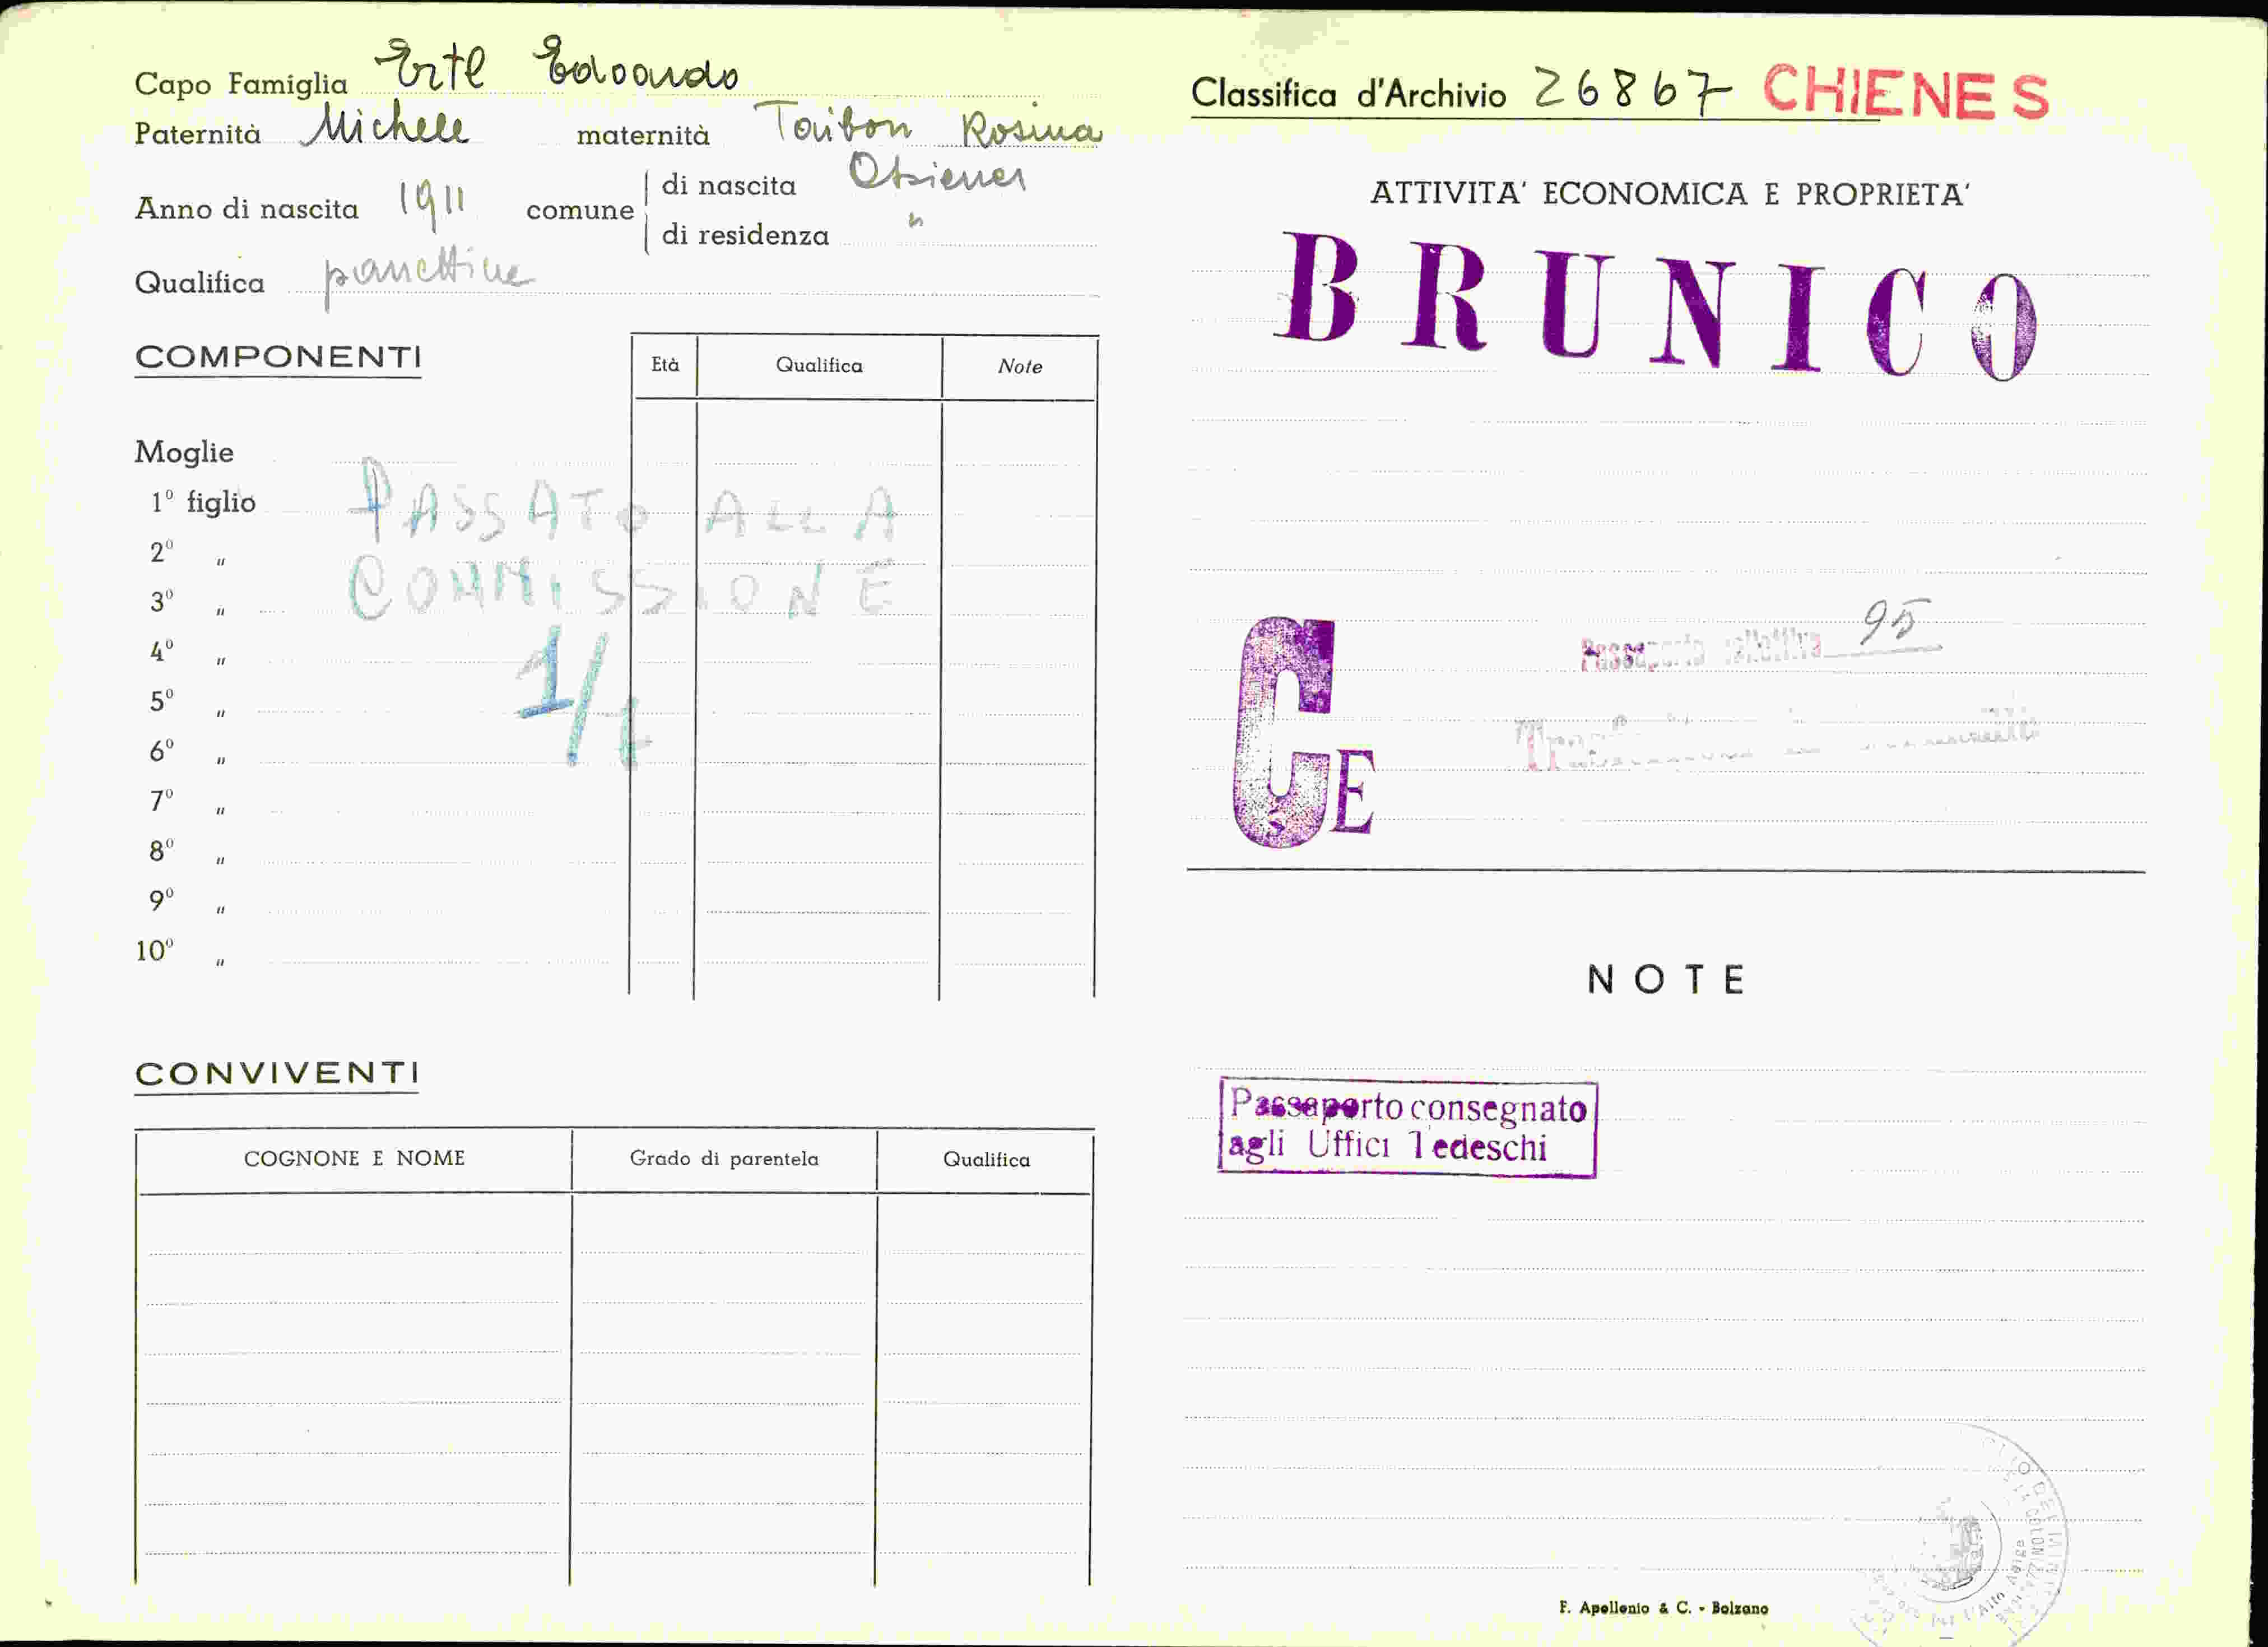 Capo Famiglia Ertl Edoardo
Paternità Michele maternità Taibon Rosina
Anno di nascita 1911 comune di nascita Chienes
di residenza "
Qualifica panettiere
COMPONENTI
Età Qualifica Note
Moglie
1º figlio
2º "
3º "
4º "
5º "
6º "
7º "
8º "
9º "
10º "
PASSATO ALLA
COMMISSIONE
1/1
CONVIVENTI
COGNONE E NOME Grado di parentela Qualifica
Classifica d'Archivio 26867 CHIENES
ATTIVITA' ECONOMICA E PROPRIETA'
BRUNICO
Passaporto collettivo 95
CE
NOTE
Passaporto consegnato
agli Uffici Tedeschi
F. Apollonio & C. - Bolzano